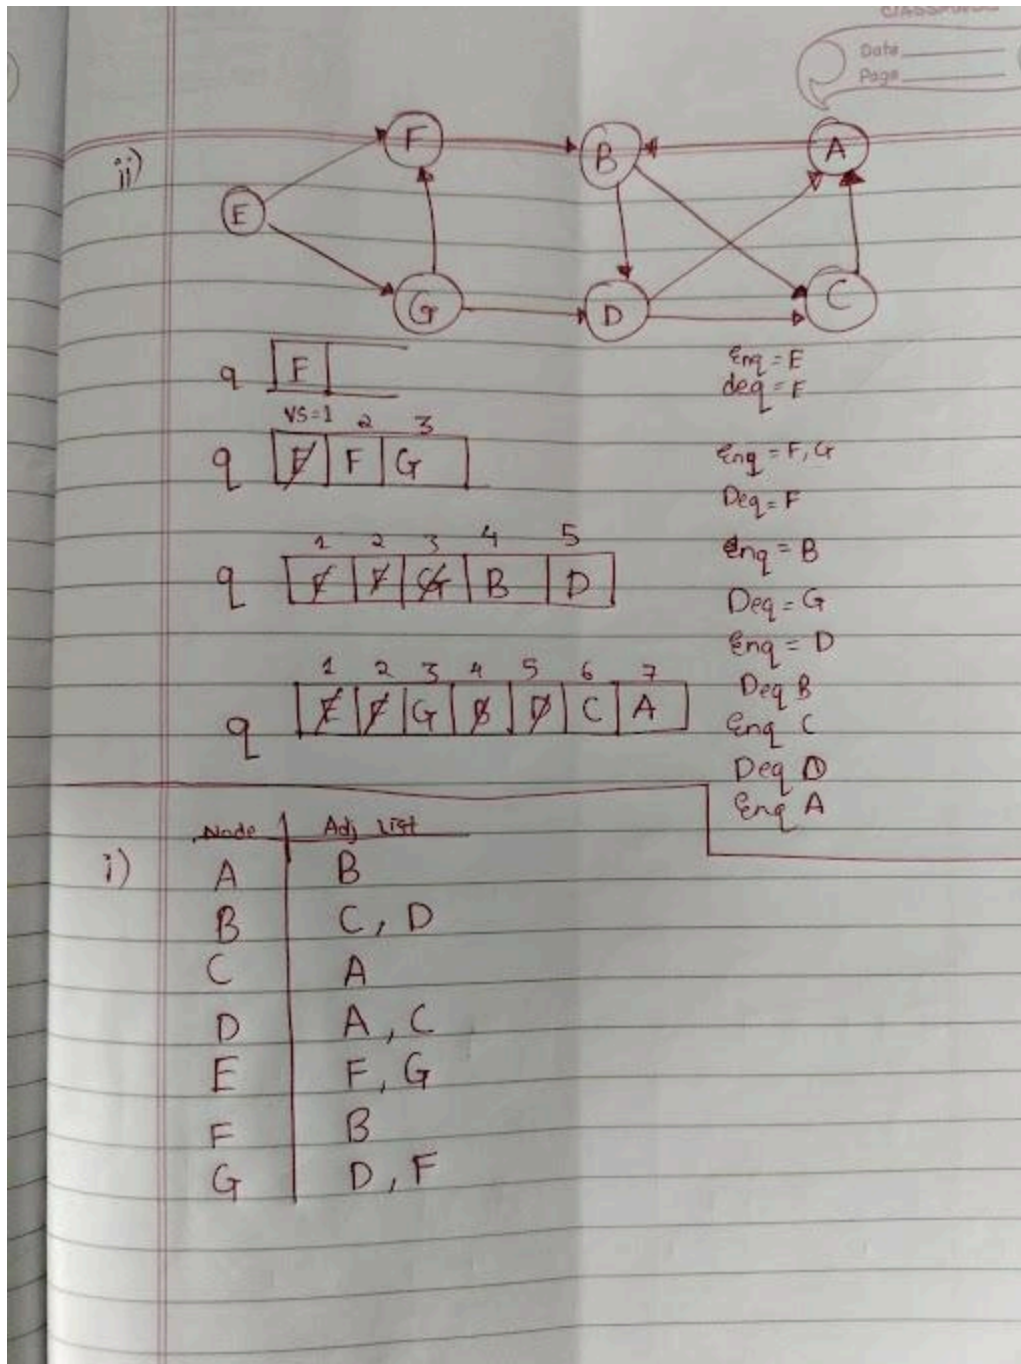 CLASSMATE
Date
Page
ii)
F B A
E
G D C
q F
Enq = E
deq = E
VS=1 2 3
q E F G
Enq = F, G
Deq = F
1 2 3 4 5
q E F G B D
Enq = B
Deq = G
Enq = D
1 2 3 4 5 6 7
q E F G B D C A
Deq B
Enq C
Deq D
Enq A
Node Adj List
i) A B
B C, D
C A
D A, C
E F, G
F B
G D, F